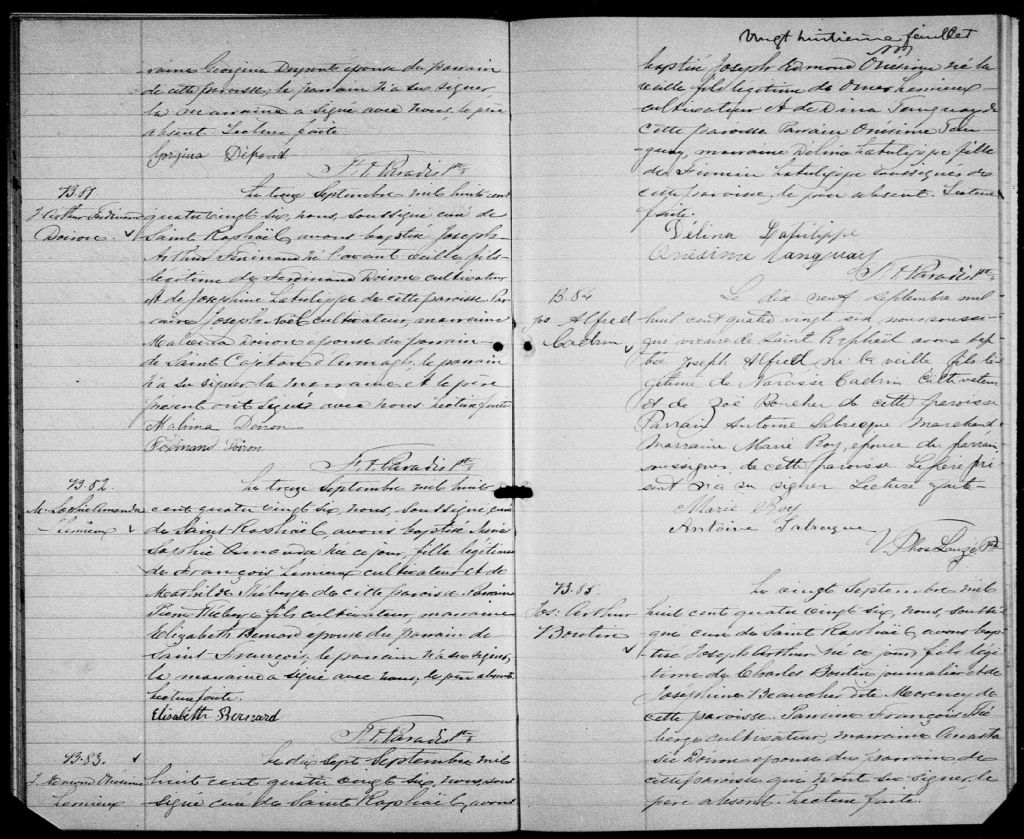 raine Georgina Dupont épouse du parrain
de cette paroisse, le parrain n'a su signer,
la marraine a signé avec nous, le père
absent Lecture faite.
Gorjina Dépond
F. X. Paradis Ptre
B 81
J. Arthur Ferdinand
Doiron.
Le treize Septembre mil huit cent
quatre vingt six, nous, soussigné curé de
Saint Raphaël, avons baptisé Joseph
Arthur Ferdinand né l'avant veille, fils
légitime de Ferdinand Doiron cultivateur
et de Josephine Latulippe de cette paroisse. Par-
rain Joseph Noël cultivateur, marraine
Malvina Doiron épouse du parrain
de Saint Cajetan d'Armagh, le parrain
n'a su signer la marraine et le père
présent ont signés avec nous Lecture faite
Malvina Doiron
Ferdinand Doiron
F. X. Paradis Ptre
B. 82.
M. Sophie Amanda
Lemieux
Le treize Septembre mil huit
cent quatre vingt six, nous, soussigné, curé
de Saint-Raphaël, avons baptisé Marie
Sophie Amanda née ce jour, fille légitime
de François Lemieux cultivateur et de
Mathilde Théberge de cette paroisse. Parrain
Théberge fils cultivateur, marraine
Elizabeth Bernard épouse du parrain de
Saint François, le parrain n'a su signer,
la marraine a signé avec nous, le père absent
Lecture faite.
Elisabeth Bernard
F. X. Paradis Ptre
B. 83.
J. Edmond Onésime
Lemieux
Le dix sept Septembre mil
huit cent quatre vingt six, nous sous
signé curé de Saint Raphaël, avons
Vingt huitième feuillet
baptisé Joseph Edmond Onésime né la
veille fils légitime de Omer Lemieux
cultivateur et de Dina Tanguay de
cette paroisse Parrain Onésime Tan-
guay, marraine Délina Latulippe fille
de Firmin Latulippe soussignés de
cette paroisse, le père absent. Lecture
faite.
Délina Latulippe
Onésime Tanguay
F. X. Paradis Ptre
B. 84
Jos Alfred
Cadrin
Le dix neuf septembre mil
huit cent quatre vingt six, nous soussi-
gné vicaire de Saint Raphël avons bap-
tisé Joseph Alfred né la veille fils lé
gitime de Narcisse Cadrin Cultivateur
et de Zoë Boucher de cette paroisse
Parrain Antoine Labrecque Marchand
Marraine Marie Roy, épouse du parrain
soussignés, de cette paroisse Le père pré
sent n'a su signer Lecture faite
Marie Roy
Antoine Labrecque
B. 85.
Jos: Arthur
Boutin
Le vingt Septembre mil
huit cent quatre vingt six, nous, soussi-
gné curé de Saint Raphaël, avons bap-
tisé Joseph Arthur né ce jour, fils légi-
time de Charles Boutin journalier et de
Josephine Beaucher dite Morency de
cette paroisse. Parrain François Thé
berge cultivateur, marraine Anasta
sie Doiron épouse du parrain de
cette paroisse qui n'ont su signer, le
père absent. Lecture faite.